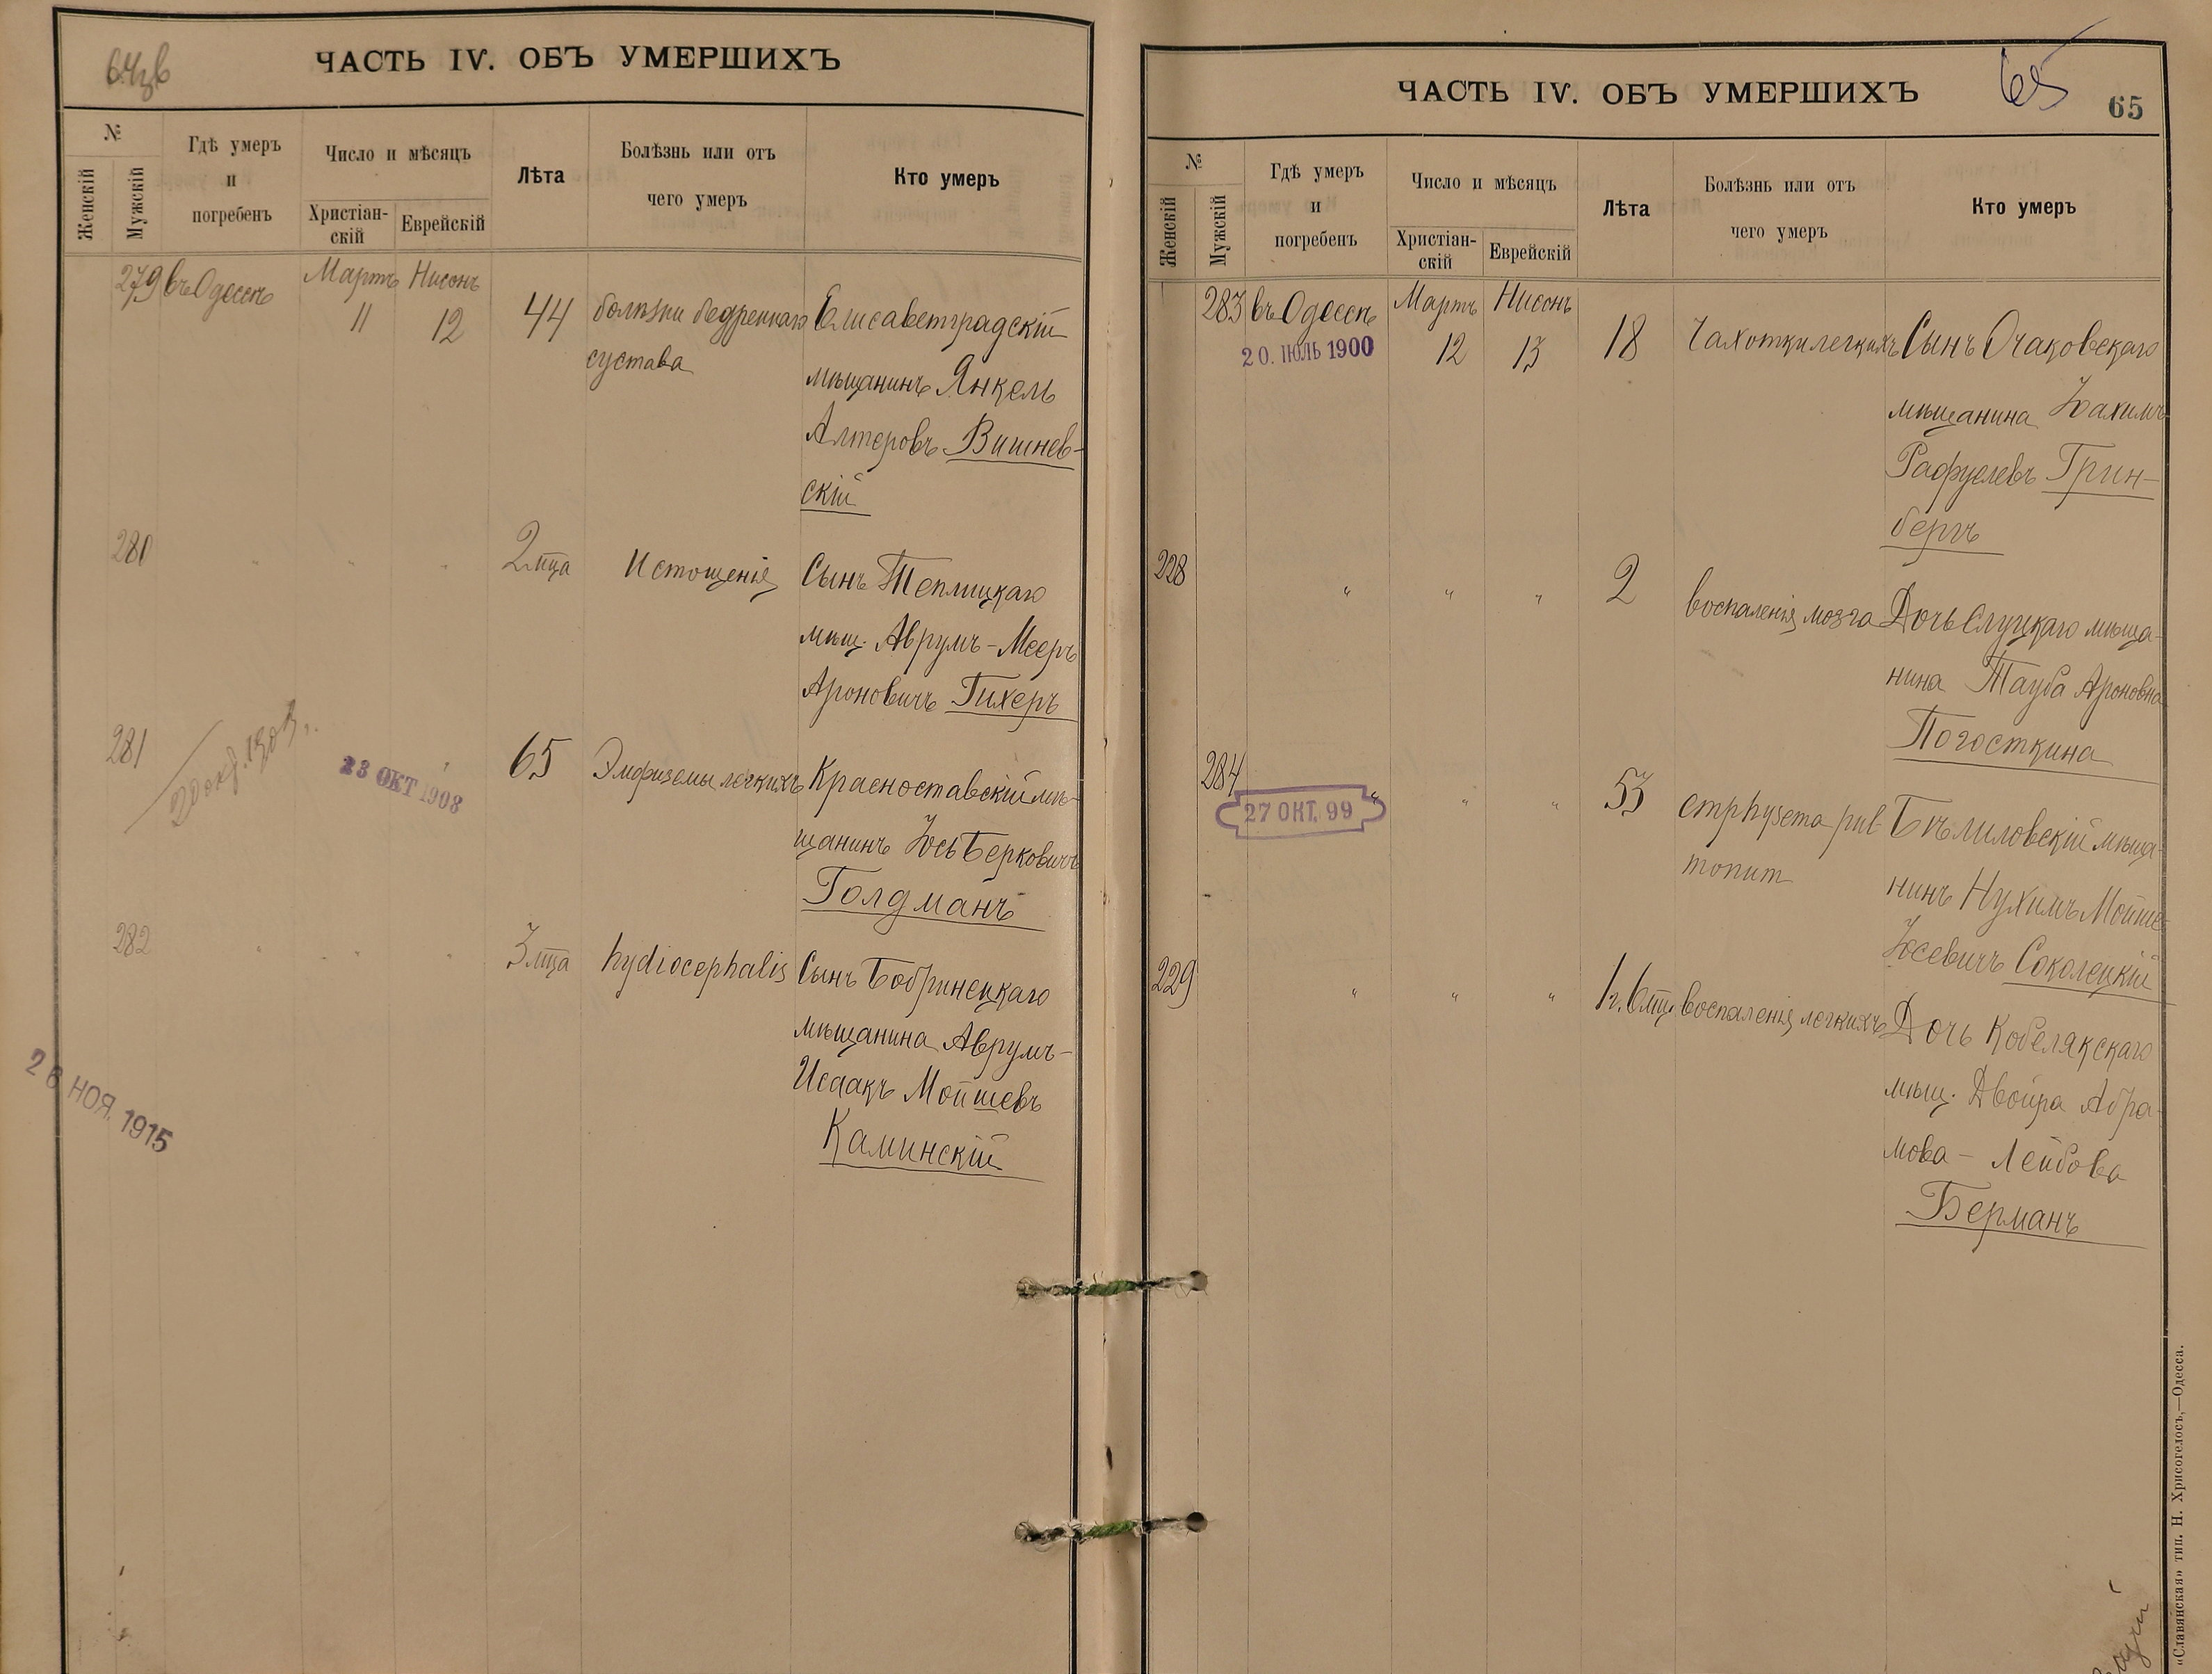 ЧАСТЬ IV. ОБЪ УМЕРШИХЪ
№
Женскій
Мужскій
Гдѣ умеръ
и
погребенъ
Число и мѣсяцъ
Христіан-
скій
Еврейскій
Лѣта
Болѣзнь или отъ
чего умеръ
Кто умеръ
279 въ Одессѣ Мартъ Нисонъ
11 12 44 болѣзни бедреннаго Елисаветградскій
сустава
мѣщанинъ Янкель
Алтеровъ Вишнев-
скій
280 " " " 2 мца Истощенія Сынъ Теплицкаго
мѣщ. Аврумъ-Мееръ
Ароновичъ Гихеръ
281 65 Эмфиземы легкихъ Красноставскій мѣ-
23 ОКТ 1908
щанинъ Іось Берковичъ
Голдманъ
282 " " " 3 мца hydiocephalis Сынъ Бобринецкаго
мѣщанина Аврумъ-
Исаакъ Мойшевъ
Каминскій
26 НОЯ. 1915
ЧАСТЬ IV. ОБЪ УМЕРШИХЪ
65
65
№
Женскій
Мужскій
Гдѣ умеръ
и
погребенъ
Число и мѣсяцъ
Христіан-
скій
Еврейскій
Лѣта
Болѣзнь или отъ
чего умеръ
Кто умеръ
283 въ Одессѣ Мартъ Нисонъ
20. ІЮЛЬ 1900
12 13 18 Чахотки легкихъ Сынъ Очаковскаго
мѣщанина Іохимъ
Рафуелевъ Грин-
бергъ
228 " " " 2 воспаленія мозга Дочь Слуцкаго мѣща-
нина Тауба Ароновна
Погосткина
284 " " " 53 emphysema pul Бѣлиловскій мѣща-
27 ОКТ. 99
нинъ Нухимъ Мойше-
Іосевичъ Соколецкій
229 " " " 1 г. 6 мц. воспаленія легкихъ Дочь Кобелякскаго
мѣщ. Двойра Абра-
мова - Лейбова
Берманъ
«Славянская» тип. Н. Хрисогелосъ,—Одесса.